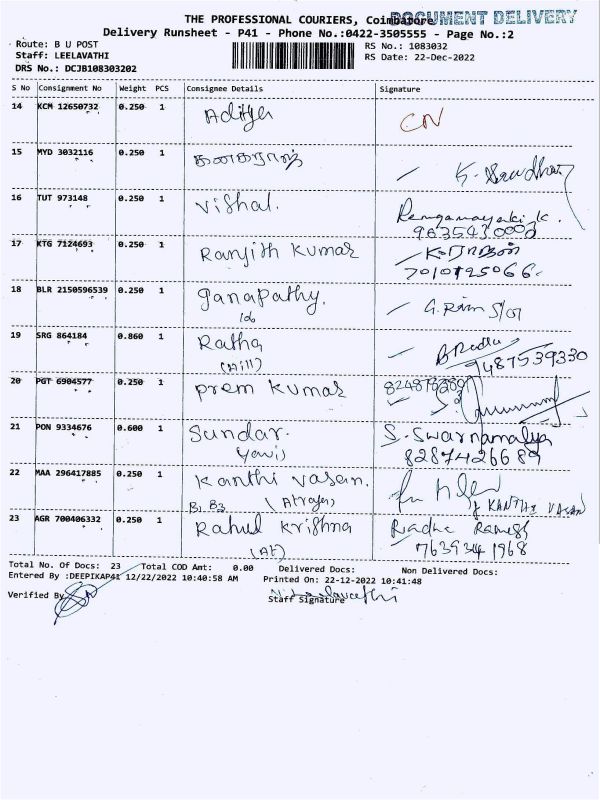 THE PROFESSIONAL COURIERS, Coimbatore
DOCUMENT DELIVERY
Delivery Runsheet - P41 - Phone No.:0422-3505555 - Page No.:2
Route: B U POST
RS No.: 1083032
Staff: LEELAVATHI
RS Date: 22-Dec-2022
DRS No.: DCJB108303202
S No Consignment No Weight PCS Consignee Details Signature
14 KCM 12650732 0.250 1 Aditya CN
15 MYD 3032116 0.250 1 கனகராஜ்
16 TUT 973148 0.250 1 Vishal. Renganayaki k.
17 KTG 7124693 0.250 1 Ranjith Kumar
7010125066
18 BLR 2150596539 0.250 1 Ganapathy.
19 SRG 864184 0.860 1 Ratha B Radha
(Mill) 9487539330
20 PGT 6904577 0.250 1 prem kumar
21 PON 9334676 0.600 1 Sundar. S. Swarnamalya
8287426689
22 MAA 296417885 0.250 1 Kanthi vasan.
B1 B3 KANTHI VASAN
23 AGR 700406332 0.250 1 Rahul Krishna Radha Ramesh
(At) 7639341968
Total No. Of Docs: 23 Total COD Amt: 0.00 Delivered Docs: Non Delivered Docs:
Entered By :DEEPIKAP41 12/22/2022 10:40:58 AM Printed On: 22-12-2022 10:41:48
Verified By
Staff Signature